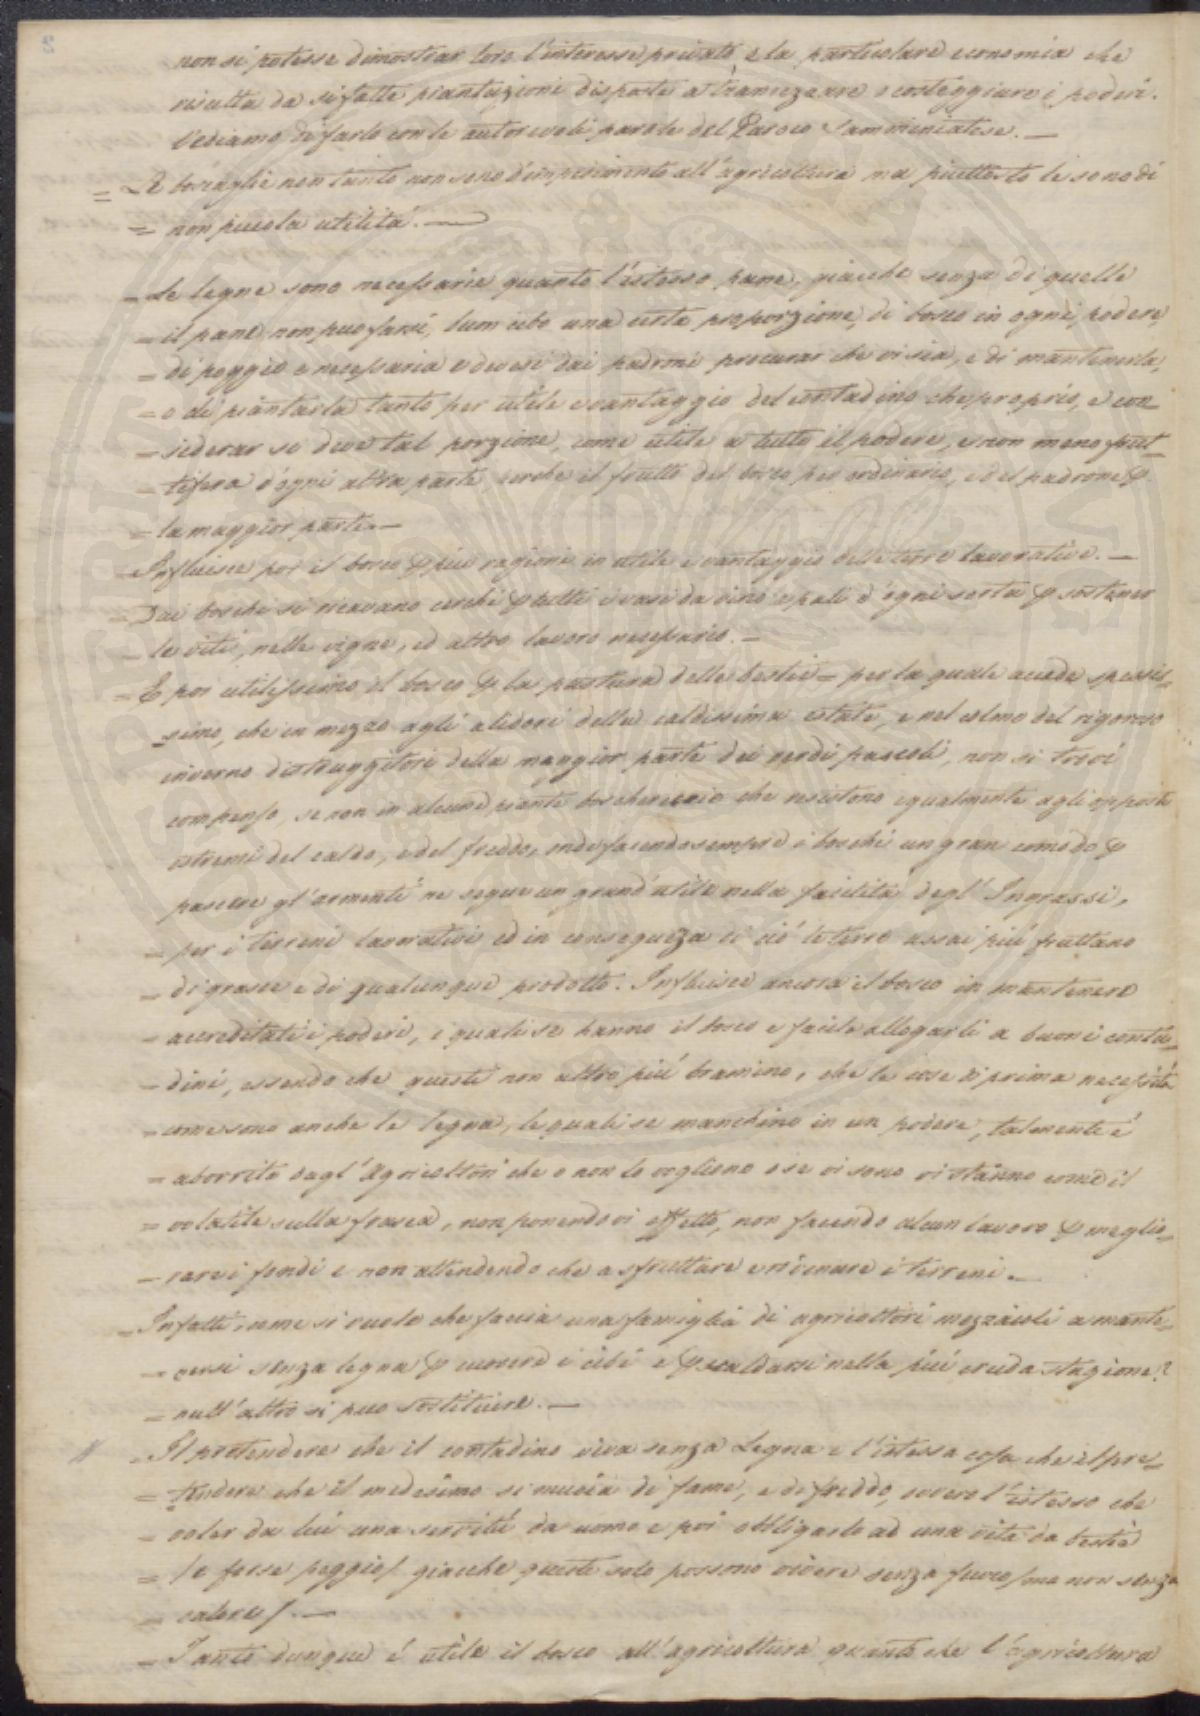 non si potesse dimostrar loro l'interesse privato, e la particolare economia che
risulta da sifatte piantazioni disposte a tramezzare o costeggiare i poderi.
Vediamo di farlo con le autorevoli parole del Paroco Samminiatese. —
= Le boscaglie non tanto non sono d'impedimento all'agricoltura ma piuttosto le sono di
= non piccola utilità. —
= Le legne sono necessarie quanto l'istesso pane, giacche senza di quelle
= il pane non puo farsi, una certa proporzione di bosco in ogni podere
= di poggio e necessaria e devesi dai padroni procurar che vi sia, e di mantenerla,
= o di piantarla tanto per utile e vantaggio del contadino che proprio, e con-
= siderar si deve tal porzione, come utile a tutto il podere, e non meno frut-
= tifera d'ogni altra parte perche il frutto del bosco per ordinario, e del padrone p
= la maggior parte. —
= Influisce poi il bosco p più ragioni in utile e vantaggio delle terre lavorative. —
= Dai boschi si ricavano cerchi p tutti i vasi da vino e pali d'ogni sorta p sostener
= le viti, nelle vigne, ed altro lavoro necessario. —
= E poi utilissimo il bosco p la pastura delle bestie = per la quale accade spessis-
simo, che in mezzo agli alidori della caldissima estate, e nel colmo del rigoroso
inverno distruggitori della maggior parte dei verdi pascoli, non si trovi
compenso, se non in alcune piante boschereccie che resistono egualmente agli opposti
estremi del caldo, e del freddo, onde facendo sempre i boschi un gran comodo p
pascere gl'armenti ne segue un grand'utile nella facilità degl'Ingrassi,
= per i terreni lavorativi ed in conseguenza di ciò le terre assai più fruttano
= di grasce e di qualunque prodotto. Influisce ancora il bosco in mantenere
= accreditati i poderi, i quali se hanno il bosco e facile allogarli a buoni conta-
= dini, essendo che questi non altro più bramino, che le cose di prima necessità
= come sono anche le legna, le quali se manchino in un podere, talmente é
= aborrito dagl'Agricoltori che o non lo vogliono o se vi sono vi stanno come il
= volatile sulla frasca, non ponendovi affetto, non facendo alcun lavoro p meglio-
= rarvi fondi e non attendendo che a sfruttare e rovinare i terreni. —
= Infatti, come si vuole che faccia una famiglia di agricoltori mezzaioli a mante-
= nersi senza legna p cuocere i cibi e p scaldarsi nella più cruda stagione?
= null'altro si puo sostituire. —
= Il pretendere che il contadino viva senza Legna e l'istessa cosa che il pre-
= tendere che il medesimo si muoia di fame, e di freddo, ovvero l'istesso che
= voler da lui una servitù da uomo e poi obbligarlo ad una vita da bestia
= /e forse peggio/ giacche queste solo possono vivere senza fuoco /ma non senza
= calore/. —
= Tanto dunque é utile il bosco all'agricoltura quanto che l'agricoltura